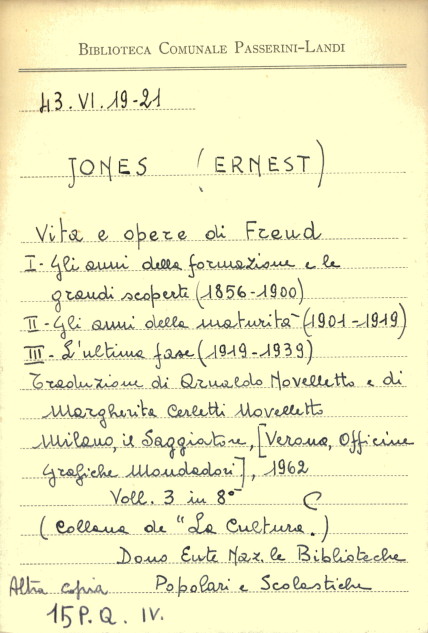 BIBLIOTECA COMUNALE PASSERINI-LANDI
43. VI. 19-21
JONES (ERNEST)
Vita e opere di Freud
I - Gli anni della formazione e le
grandi scoperte (1856-1900)
II - Gli anni della maturità (1901-1919)
III - L'ultima fase (1919-1939)
Traduzione di Arnaldo Novelletto e di
Margherita Cerletti Novelletto
Milano, il Saggiatore, [Verona, Officine
Grafiche Mondadori], 1962
Voll. 3 in 8° C
(Collana de "La Cultura.)
Dono Ente Naz.le Biblioteche
Popolari e Scolastiche
Altra copia
15 P.Q. IV.